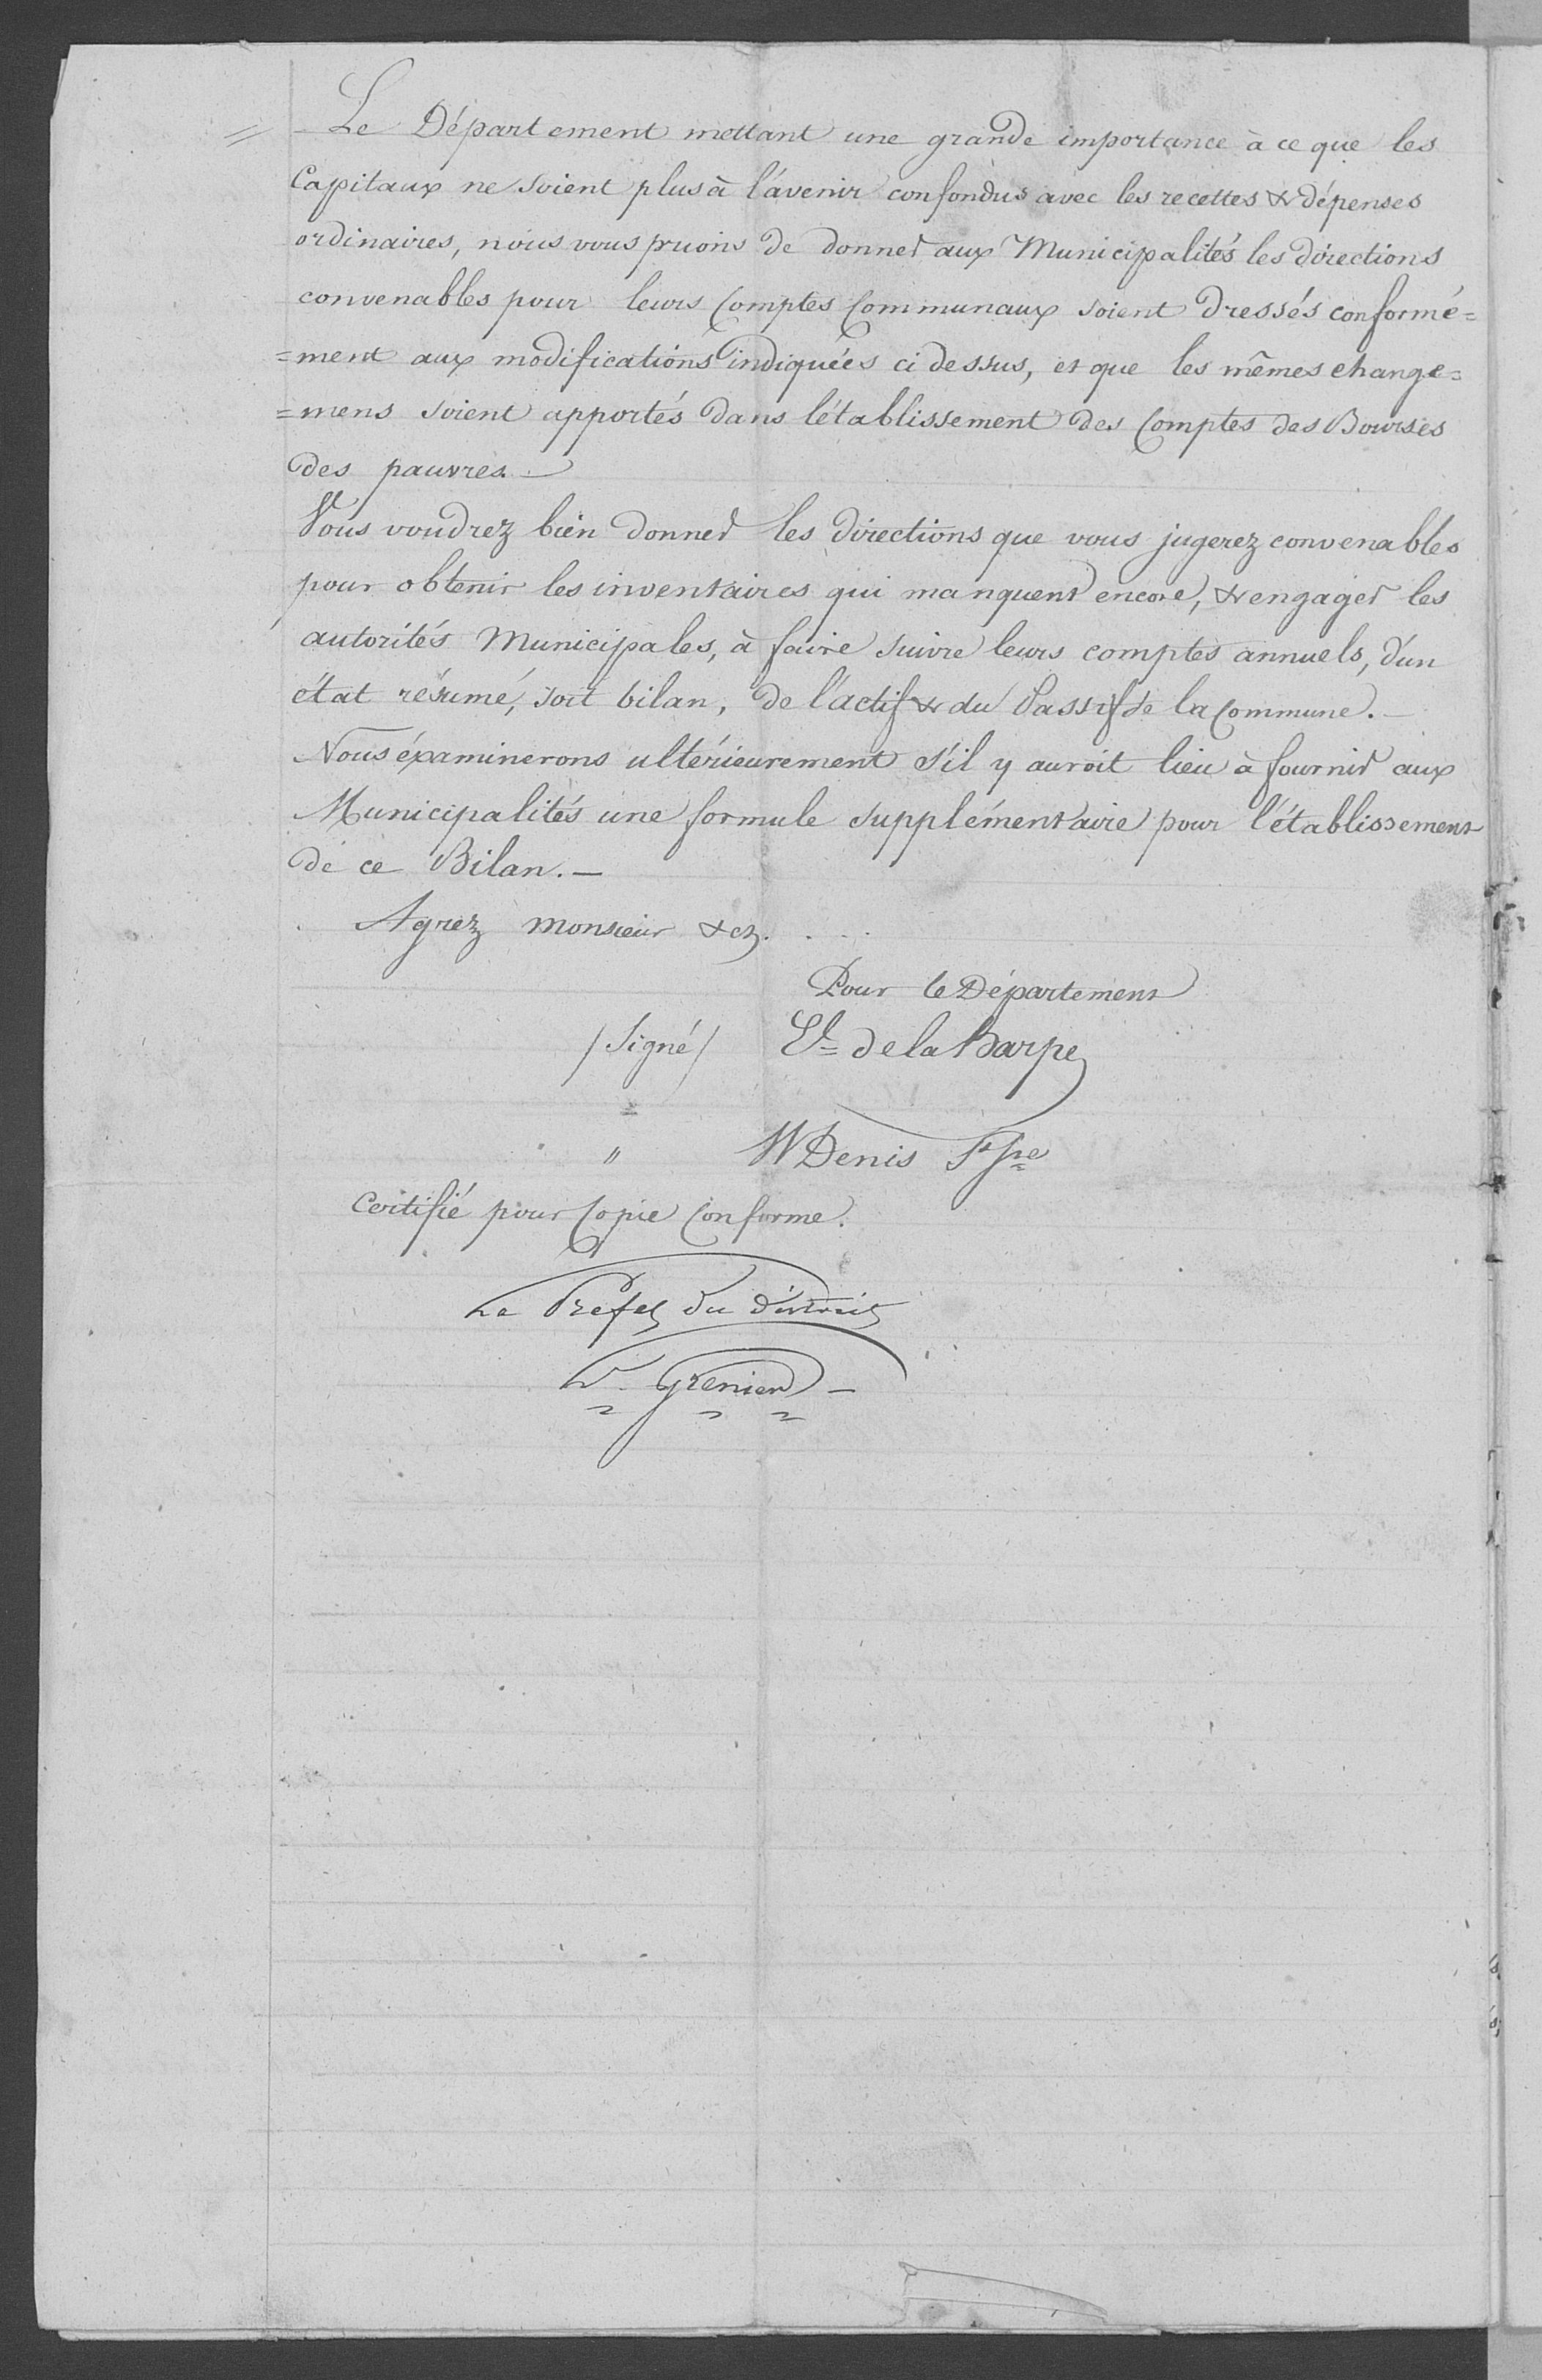 Le Département mettant une grande importance à ce que les
Capitaux ne soient plus à l'avenir confondus avec les recettes & dépenses
ordinaires, nous vous prions de donner aux Municipalités les directions
convenables pour leurs Comptes Communaux soient dressés conformé=
=ment aux modifications indiquées ci dessus, et que les mêmes change=
=mens soient apportés dans l'établissement des Comptes des Bourses
des pauvres. —
Vous voudrez bien donner les directions que vous jugerez convenables
pour obtenir les inventaires qui manquent encore, & engager les
autorités Municipales, à faire suivre leurs comptes annuels, d'un
état résumé, soit bilan, de l'actif & du Passif de la Commune. —
Nous éxaminerons ultérieurement s'il y auroit lieu à fournir aux
Municipalités une formule supplémentaire pour l'établissement
de ce Bilan. —
Agrez Monsieur &c. . . .
Pour le Département
/Signé/ El= de la Harpe
" W Denis
Certifié pour Copie Conforme.
Le Préfet du district
Ls. Grenier —